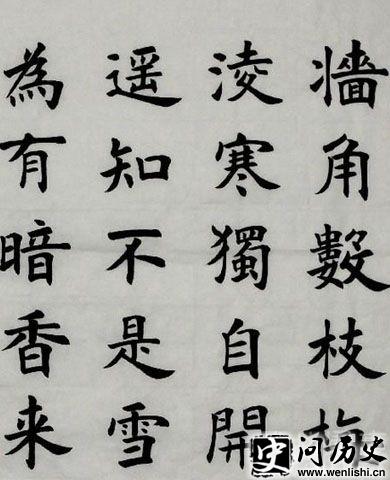 牆角數枝梅
淩寒獨自開
遥知不是雪
為有暗香来
问历史
www.wenlishi.cn